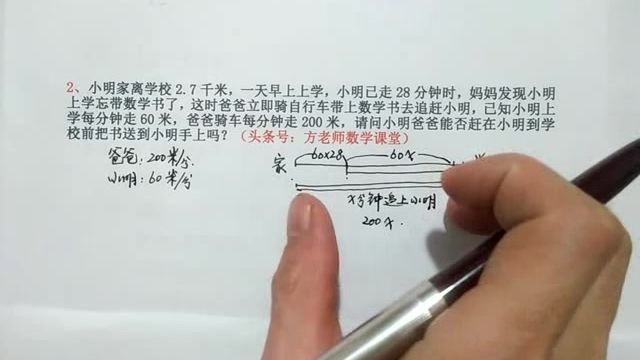 2、小明家离学校2.7千米，一天早上上学，小明已走28分钟时，妈妈发现小明
上学忘带数学书了，这时爸爸立即骑自行车带上数学书去追赶小明，已知小明上
学每分钟走60米，爸爸骑车每分钟走200米，请问小明爸爸能否赶在小明到学
校前把书送到小明手上吗？（头条号：方老师数学课堂）
爸爸：200米/分
小明：60米/分
60×28 60x
家
x分钟追上小明
200x